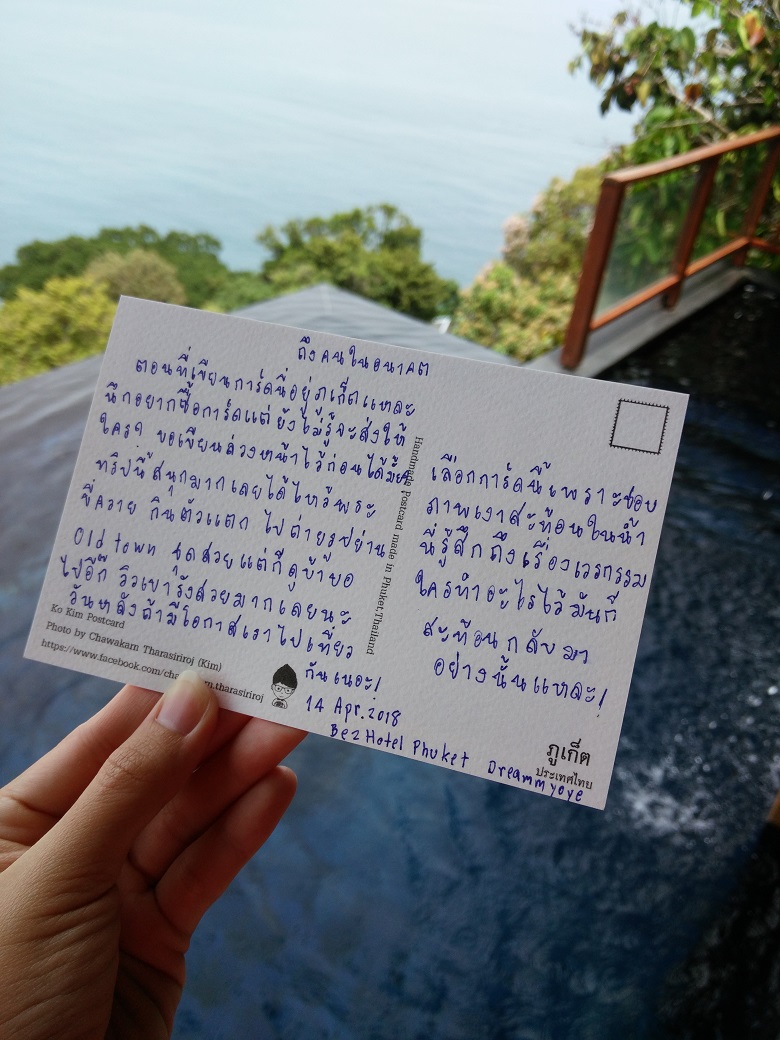 ถึงคนในอนาคต
ตอนที่เขียนการ์ดนี่อยู่ภูเก็ตแหละ
นึกอยากซื้อการ์ดแต่ยังไม่รู้จะส่งให้
ใคร ขอเขียนล่วงหน้าไว้ก่อนได้มั้ย
ทริปนี้สนุกมากเลยได้ไหว้พระ
ขี่ควาย กินตัวแตก ไปถ่ายรูปย่าน
Old town ชุดสวยแต่ก็ดูบ้าบอ
ไปอีก วิวเขารังสวยมากเลยนะ
วันหลังถ้ามีโอกาสเราไปเที่ยว
กันเนอะ!
14 Apr. 2018
Be2Hotel Phuket Dreammyoye
Ko Kim Postcard
Photo by Chawakam Tharasiriroj (Kim)
https://www.facebook.com/cha m.tharasiriroj
Handmade Postcard made in Phuket,Thailand
เลือกการ์ดนี้เพราะชอบ
ภาพเงาสะท้อนในน้ำ
นี่รู้สึกถึงเรื่องเวรกรรม
ใครทำอะไรไว้มันก็
สะท้อนกลับมา
อย่างนั้นแหละ!
ภูเก็ต
ประเทศไทย